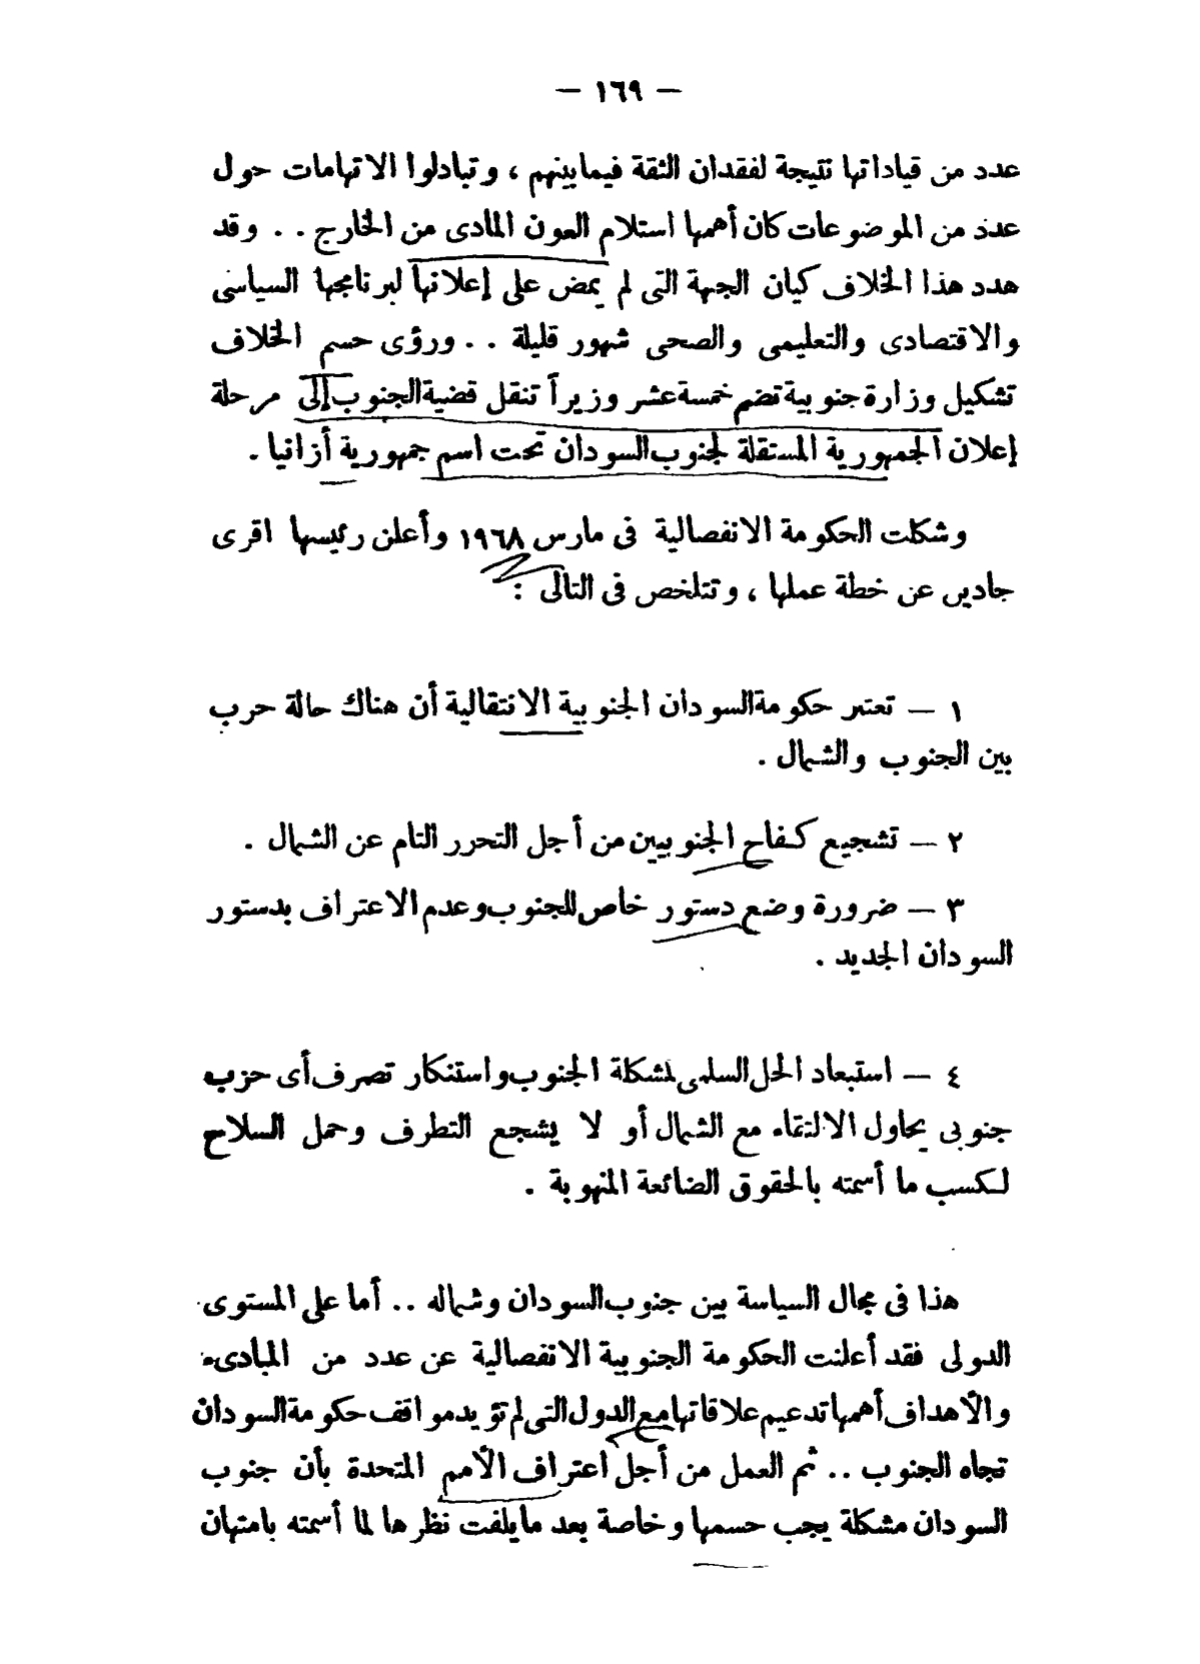 — ١٦٩ —
عدد من قياداتها نتيجة لفقدان الثقة فيما بينهم ، وتبادلوا الاتهامات حول
عدد من الموضوعات كان أهمها استلام العون المادى من الخارج . . وقد
هدد هذا الخلاف كيان الجبهة التى لم يمض على إعلانها لبرنامجها السياسى
والاقتصادى والتعليمى والصحى شهور قليلة . . ورؤى حسم الخلاف
تشكيل وزارة جنوبية تضم خمسة عشر وزيراً تنقل قضية الجنوب إلى مرحلة
إعلان الجمهورية المستقلة لجنوب السودان تحت اسم جمهورية أزانيا .
وشكلت الحكومة الانفصالية فى مارس ١٩٦٨ وأعلن رئيسها اقرى
جادين عن خطة عملها ، وتتلخص فى التالى :
١ — تعتبر حكومة السودان الجنوبية الانتقالية أن هناك حالة حرب
بين الجنوب والشمال .
٢ — تشجيع كفاح الجنوبيين من أجل التحرر التام عن الشمال .
٣ — ضرورة وضع دستور خاص للجنوب وعدم الاعتراف بدستور
السودان الجديد .
٤ — استبعاد الحل السلمى لمشكلة الجنوب واستنكار تصرف أى حزب
جنوبى يحاول الالتقاء مع الشمال أو لا يشجع التطرف وحمل السلاح
لكسب ما أسمته بالحقوق الضائعة المنهوبة .
هذا فى مجال السياسة بين جنوب السودان وشماله .. أما على المستوى
الدولى فقد أعلنت الحكومة الجنوبية الانفصالية عن عدد من المبادىء
والأهداف أهمها تدعيم علاقاتها مع الدول التى لم تؤيد مواقف حكومة السودان
تجاه الجنوب .. ثم العمل من أجل اعتراف الأمم المتحدة بأن جنوب
السودان مشكلة يجب حسمها وخاصة بعد ما يلفت نظرها لما أسمته بامتهان